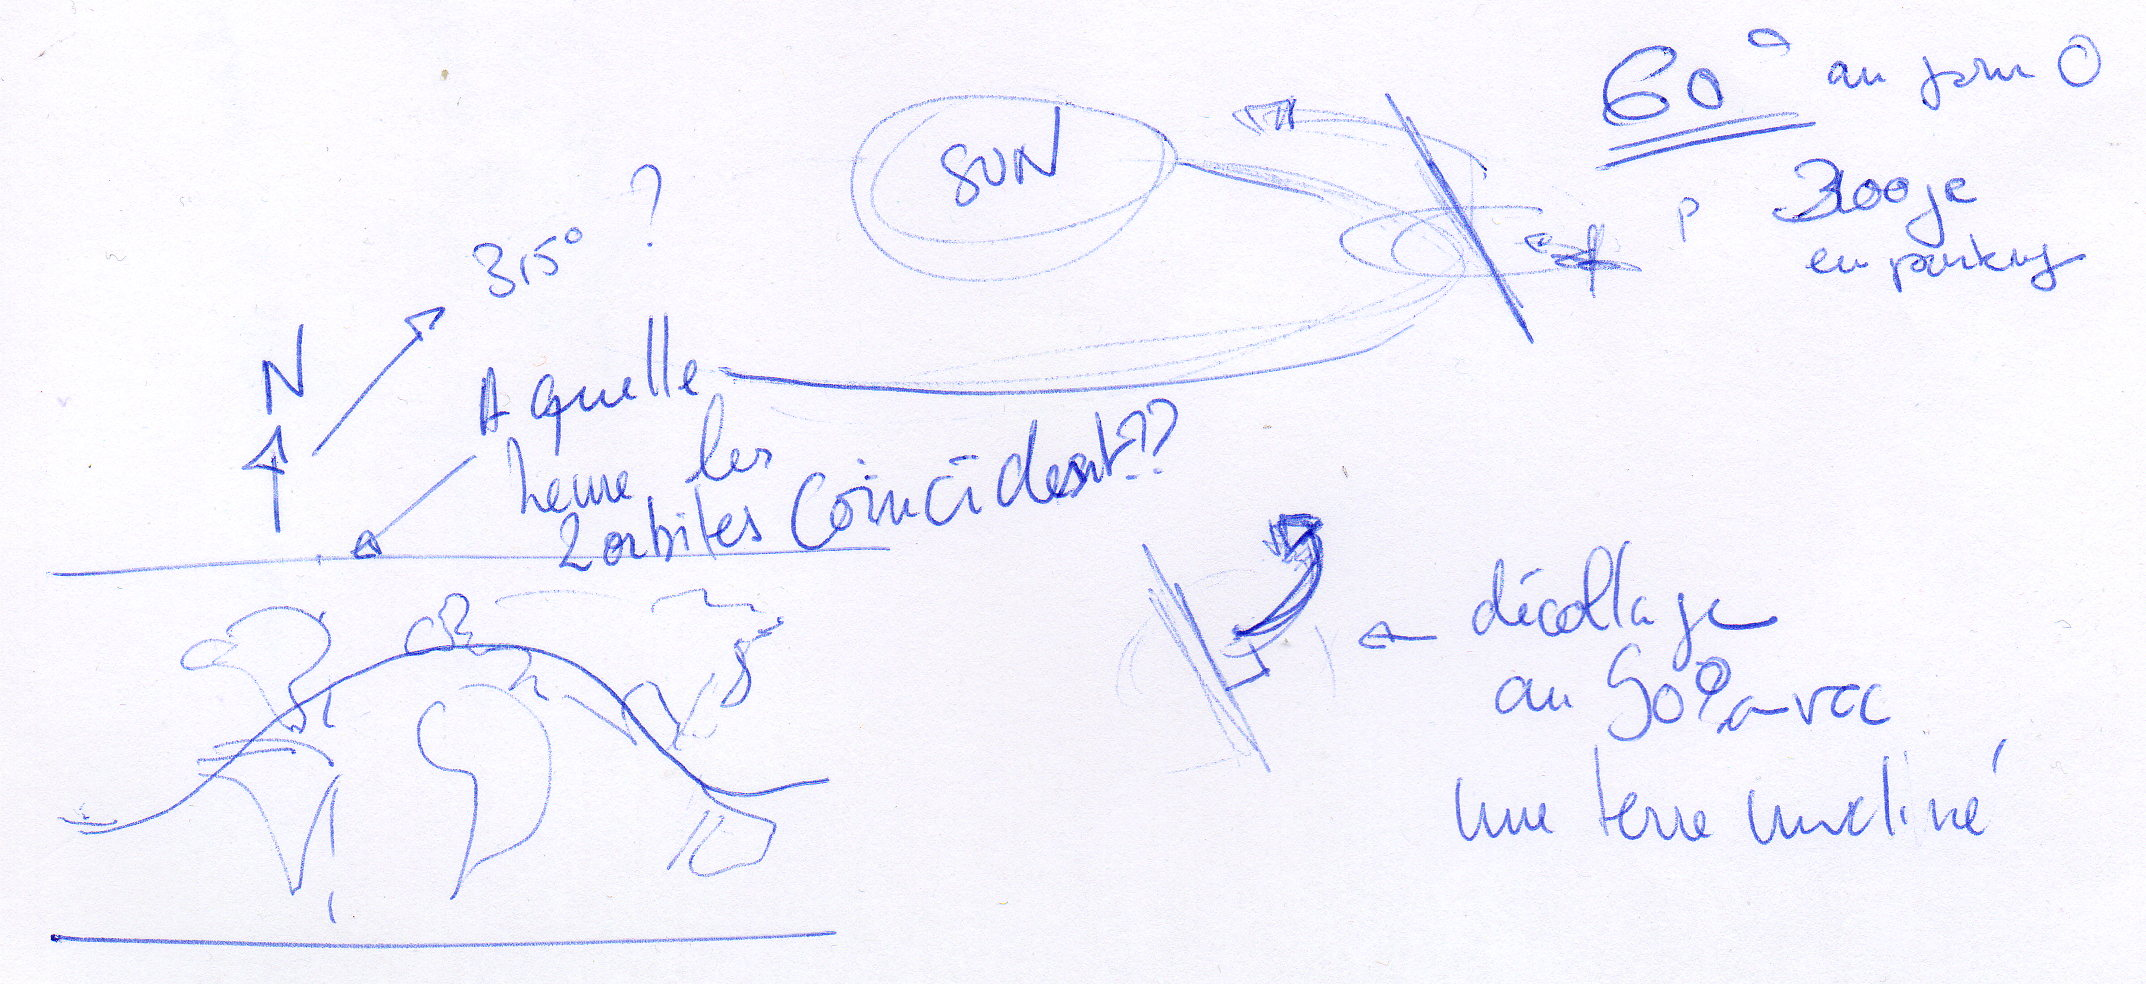 60° au jour 0
SUN
en parking
P
3,5° ?
N
A quelle
heure les
2 orbites Coïncident??
décollage
au 90° avec
une terre incliné